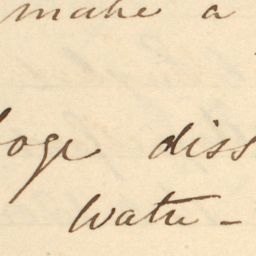 make a
oge diss
Water -